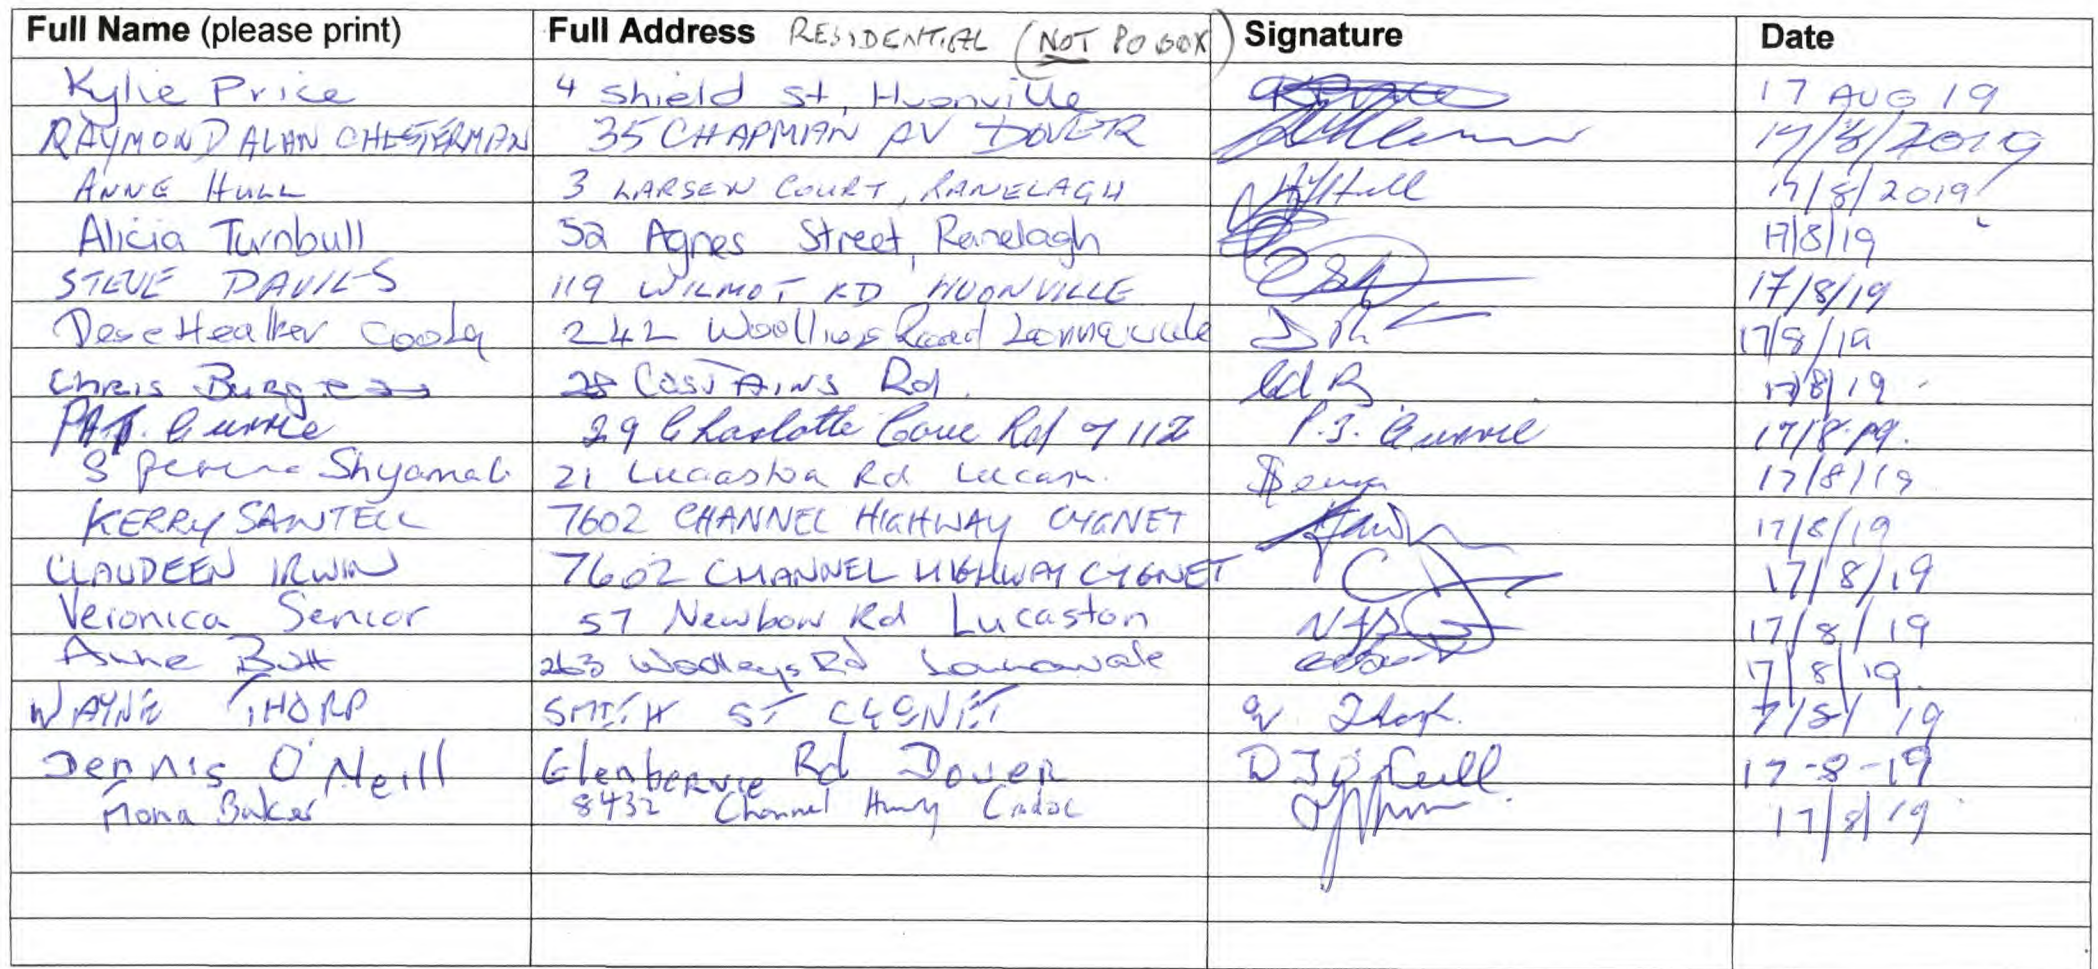 Full Name (please print) Full Address RESIDENTIAL (NOT PO BOX) Signature Date
Kylie Price 4 Shield St, Huonville 17 AUG 19
RAYMOND ALAN CHESTERMAN 35 CHAPMAN AV DOVER 17/8/2019
ANNE HULL 3 LARSEN COURT, RANELAGH AYHull 17/8/2019
Alicia Turnbull 52 Agnes Street, Ranelagh 17/8/19
STEVE DAVIES 119 WILMOT RD HUONVILLE 17/8/19
242 Road 17/8/19
Chris Burgess 28 COSTAINS Rd. 17/8/19
PAT. Currie 29 Charlotte Cove Rd 7112 P.J. Currie 17/8/19.
S Shyamal 21 Lucaston Rd 17/8/19
KERRY SAWTELL 7602 CHANNEL HIGHWAY CYGNET 17/8/19
CLAUDEEN IRWIN 7602 CHANNEL HIGHWAY CYGNET 17/8/19
Veronica Senior 57 Newbon Rd Lucaston 17/8/19
Anne Butt 263 Woolleys Rd Lonnavale 17/8/19.
WAYNE THORP SMITH ST CYGNET W Thorp. 7/8/19
Dennis O'Neill Glenbervie Rd Dover D J O'Neill 17-8-19
Fiona Baker 8432 Channel Hwy Cradoc 17/8/19